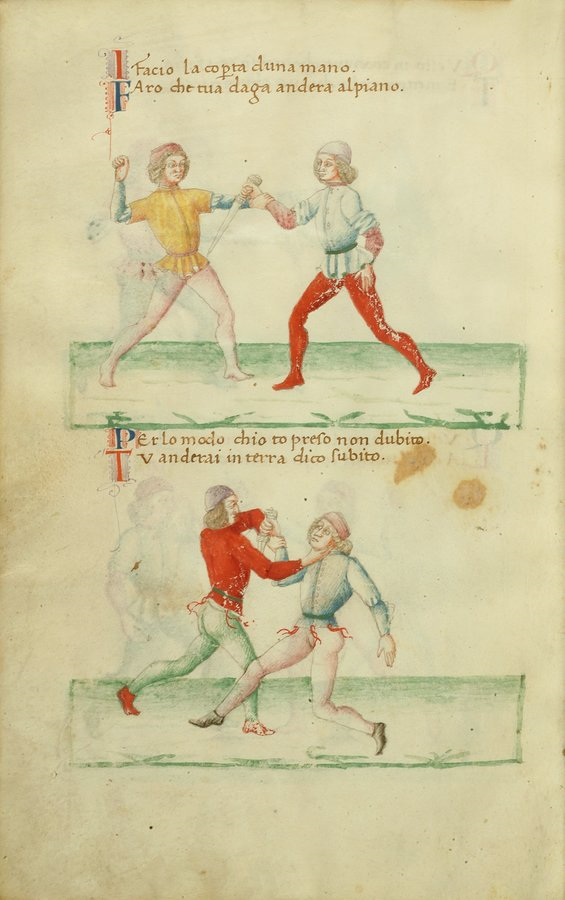 I Facio la coperta duna mano.
FAro che tua daga andera alpiano.
PEr lo modo chio to preso non dubito.
TV anderai in terra dico subito.